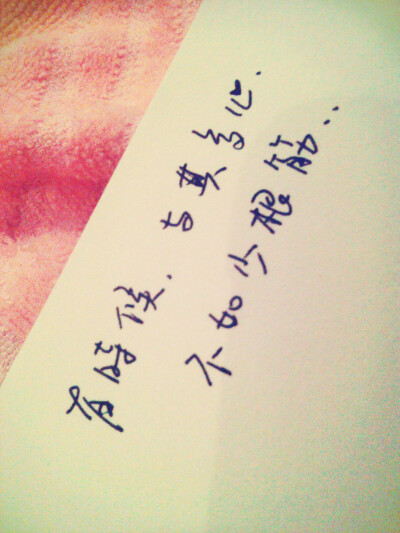 有時候.与其多心.
不如少根筋...